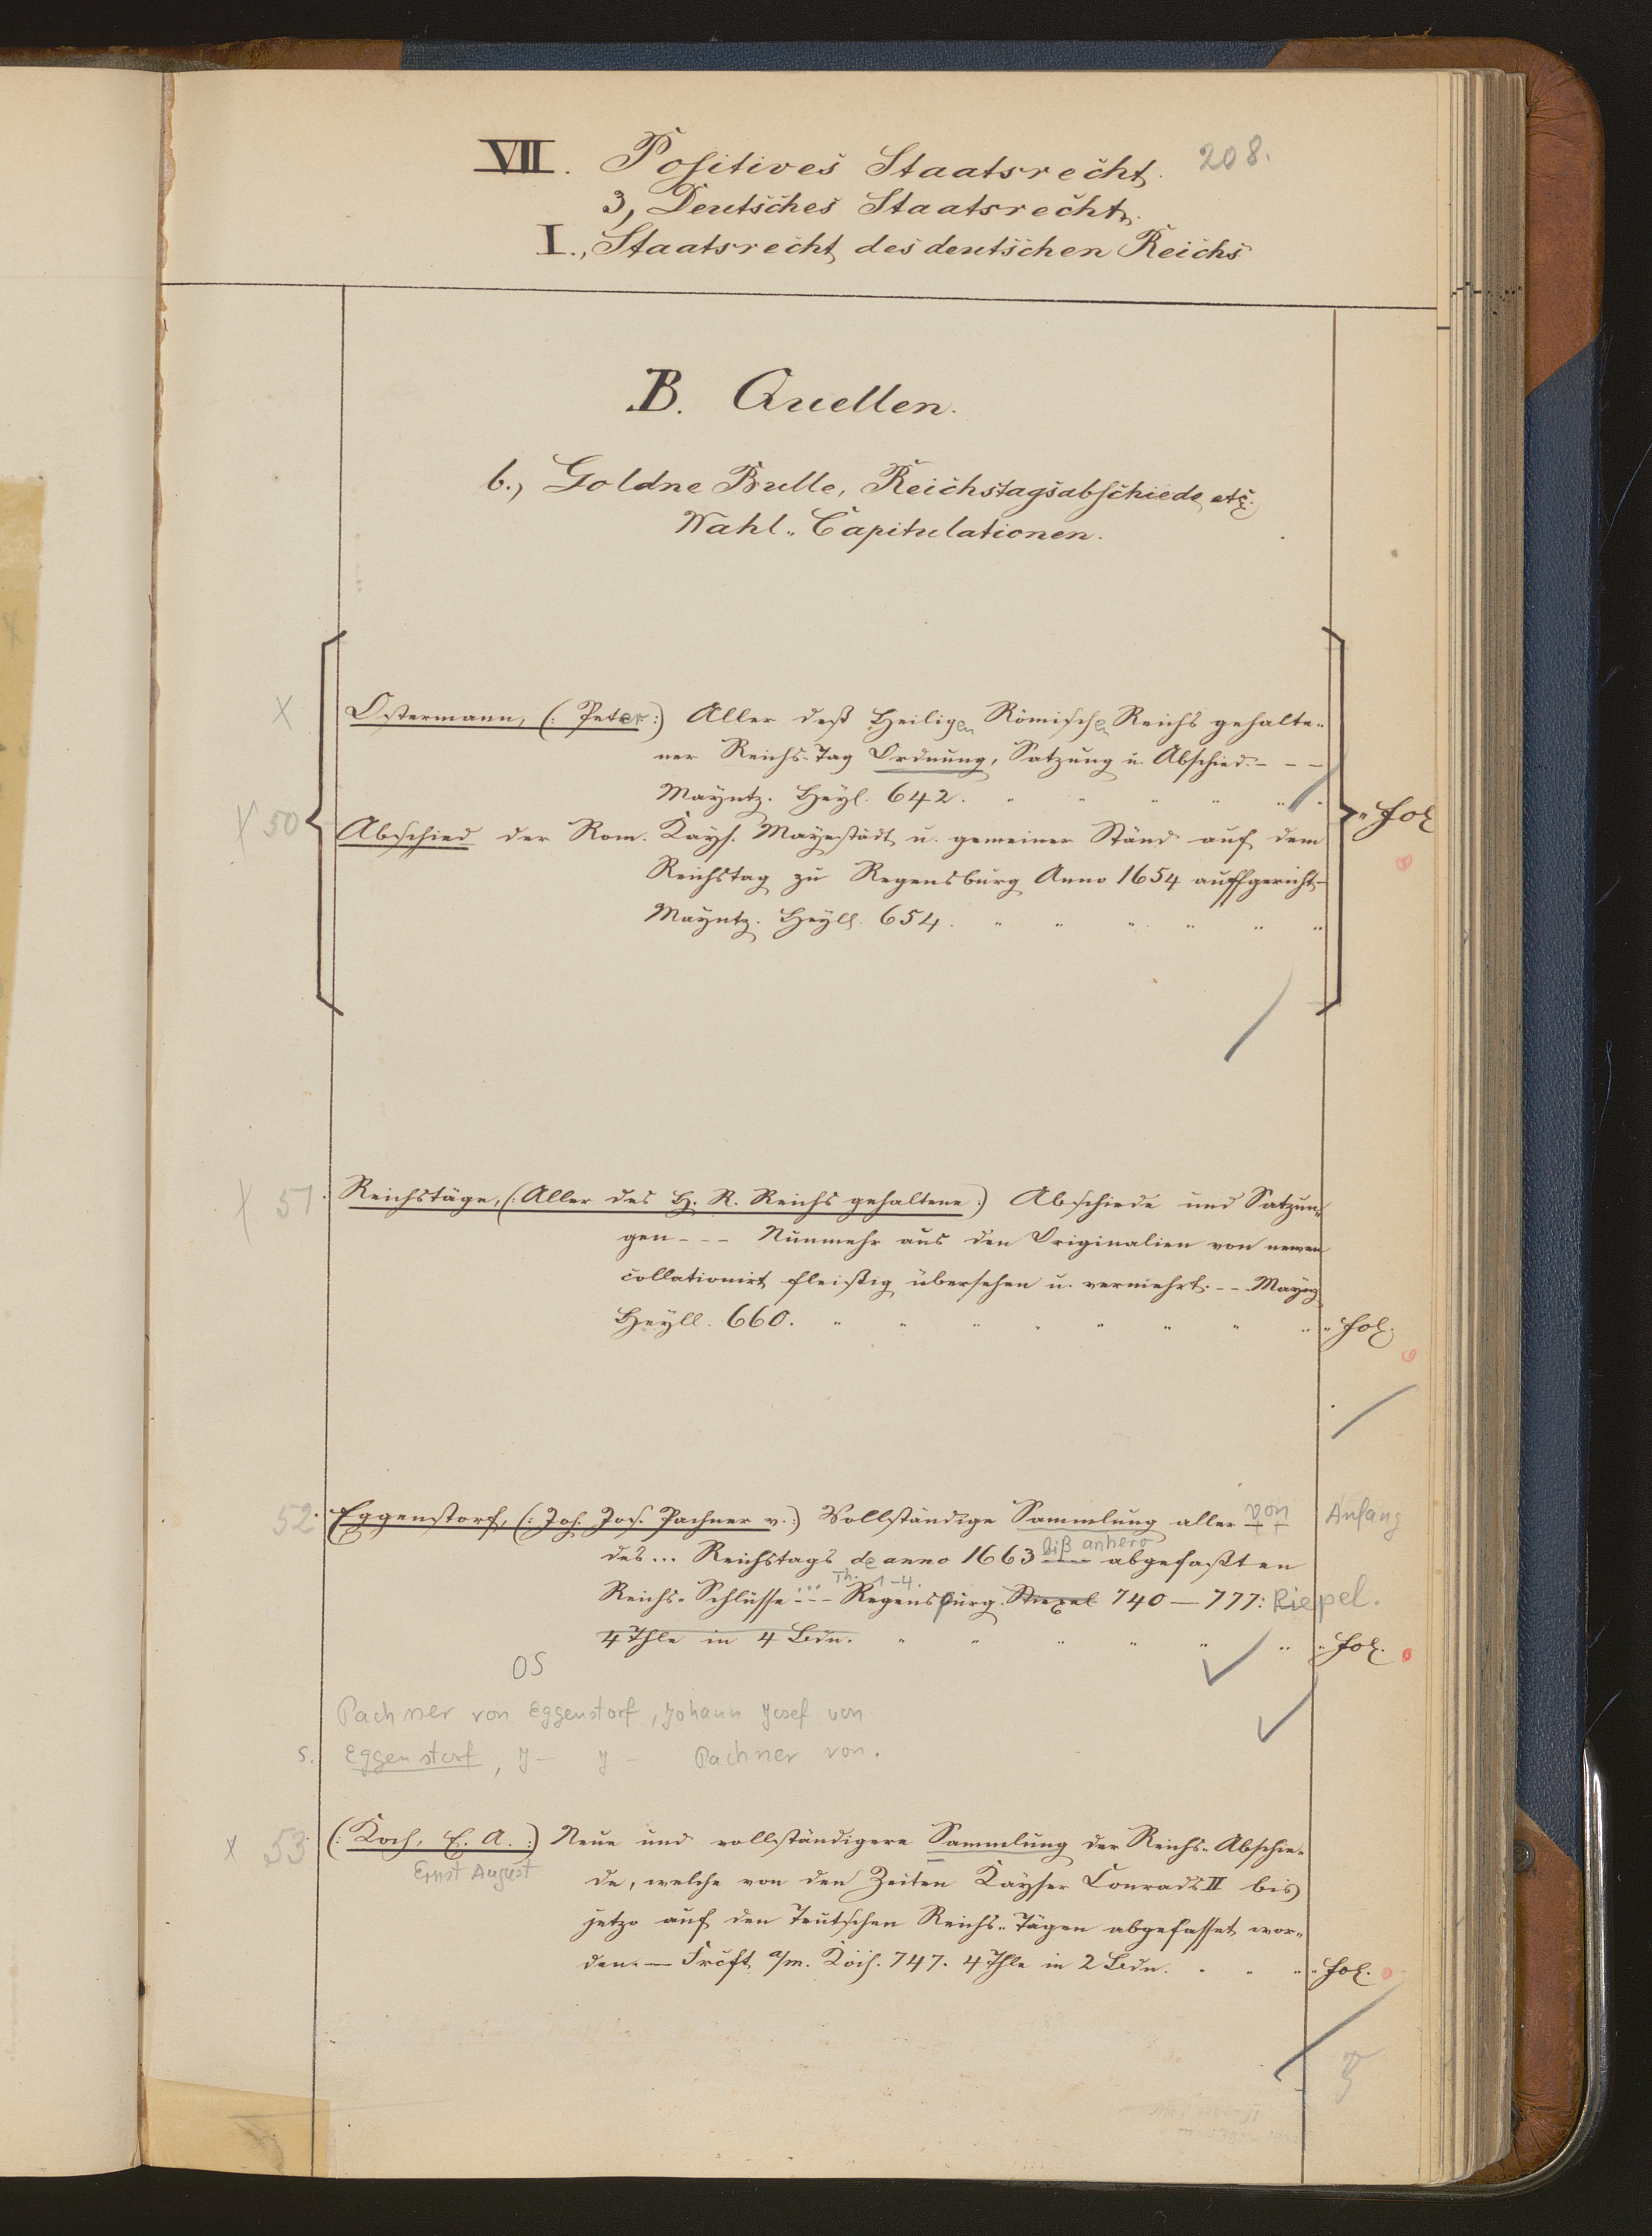 VII. Positives Staatsrecht. 208.
3, Deutsches Staatsrecht.
I., Staatsrecht des deutschen Reichs
B. Quellen.
b., Goldne Bulle, Reichstagsabschiede etc.
Wahl-Capitulationen.
X Ostermann, (: Peter :) Aller deß Heiligen Römischen Reichs gehalte-
ner Reichs-Tag Ordnung, Satzung u. Abschied. - - -
Mayntz. Heyl. 642.
X 50 Abschied der Rom. Kays. Mayestädt u. gemeiner Ständ auf dem
" fol
Reichstag zu Regensburg Anno 1654 auffgericht-
Mayntz. Heyll. 654.
X 51. Reichstäge, (: Aller des H. R. Reichs gehaltene :) Abschiede und Satzun-
gen - - - Nunmehr aus den Originalien von newen
collationirt fleißig übersehen u. vermehrt. - - Mayntz
Heyll. 660. " fol.
52. Eggenstorf, (: Joh. Jos. Pachner v. :) Vollständige Sammlung aller von Anfang
des ... Reichstags de anno 1663 biß anhero abgefaßten
Reichs-Schlüsse ... Th. 1-4. Regenspurg. 740 — 777: Riepel.
4 Thle in 4 Bdn. " fol.
OS
Pachner von Eggenstorf, Johann Josef von
s. Eggenstorf, J - J - Pachner von.
x 53 (: Koch, E. A. :) Neue und vollständigere Sammlung der Reichs-Abschie-
Ernst August
de, welche von den Zeiten Kayser Conrads II bis
jetzo auf den Teutschen Reichs-Tägen abgefasset wor-
den. — Frcft a/m. Koch. 747. 4 Thle in 2 Bdn. " fol.